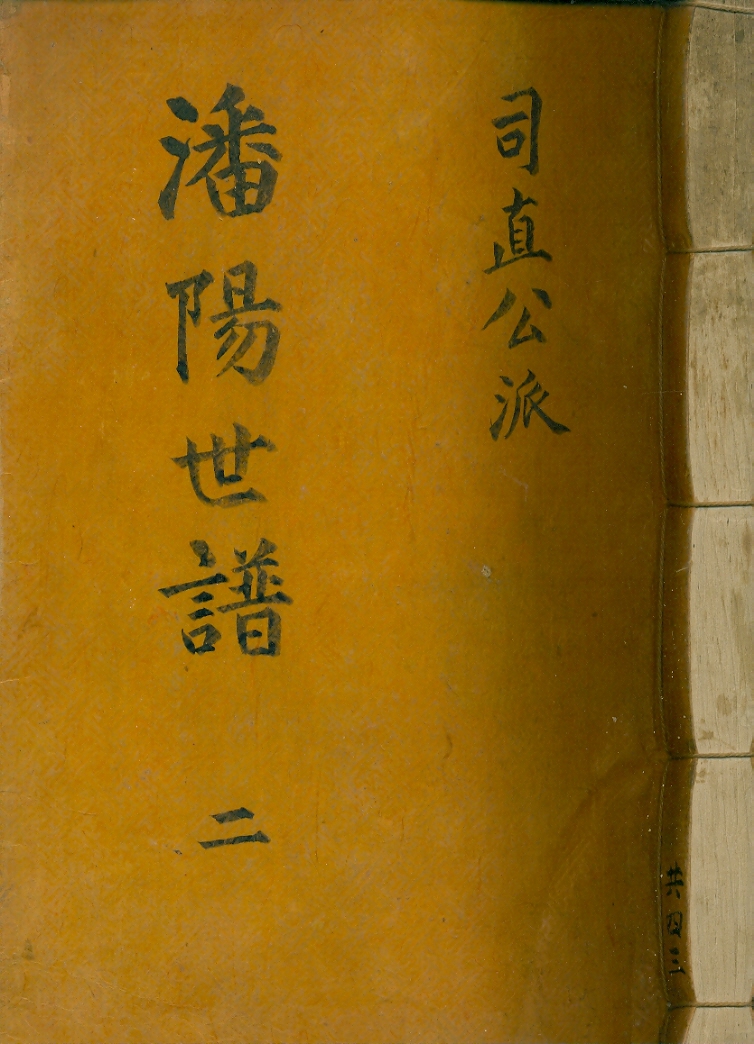 司直公派
潘陽世譜 二
共四